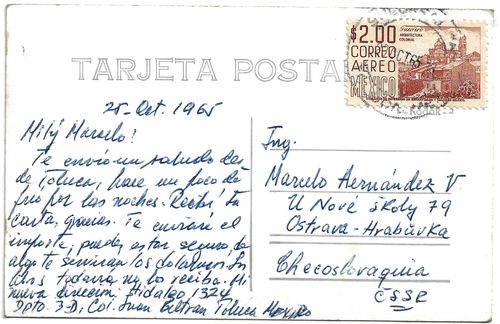 TARJETA POSTAL
Guerrero
ARQUITECTURA
COLONIAL
$2.00
CORREO
AEREO
MÉXICO
OCT 65
25-Oct. 1965
Milý Marcelo!
Te envío un saludo des
de Toluca, hace un poco de
frio por las noches. Recibí tu
carta, gracias. Te enviaré el
importe, puedes estar seguro, de
algo te servirán los dolarcitos.
todavía no los recibo. Mi
nueva dirección: Hidalgo 1324
Dpto. 3-D, Col. Juan Beltran Toluca Mexico
Ing.
Marcelo Hernández V
U Nové školy 79
Ostrava-Hrabůvka
Checoslovaquia
ČSSR